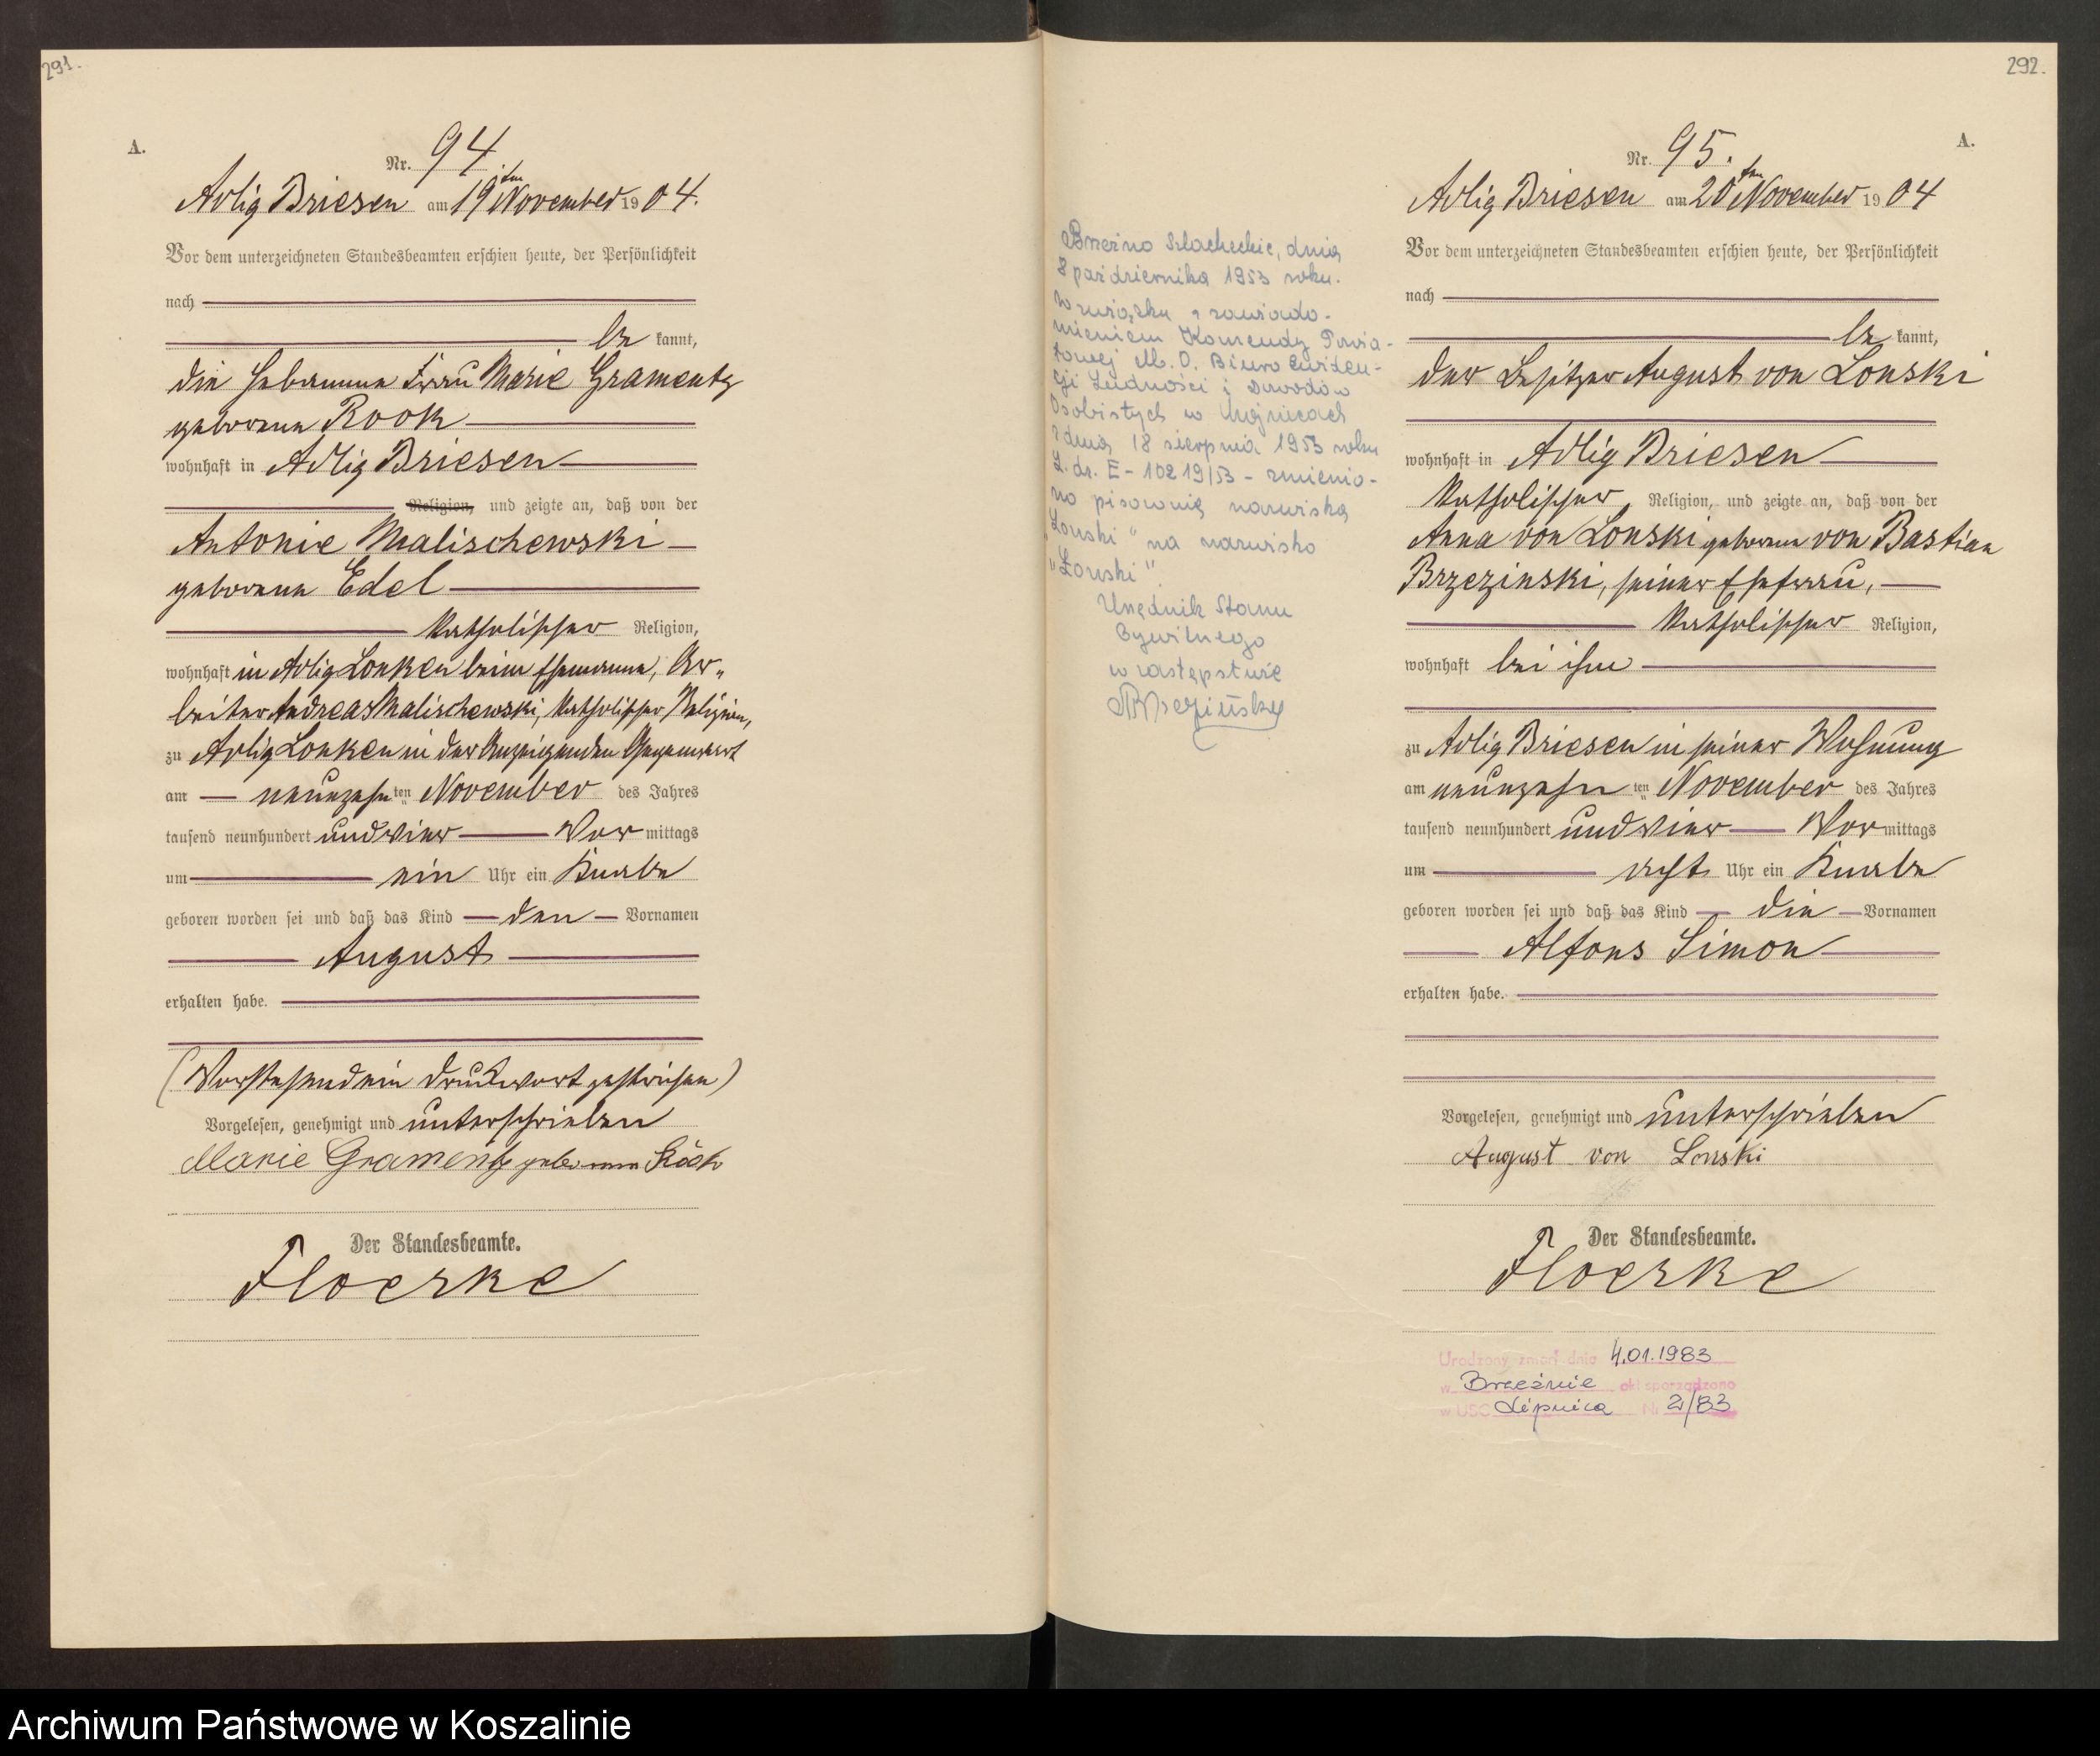 291.
A.
Nr. 94.
Adlig Briesen am 19ten November 1904.
Vor dem unterzeichneten Standesbeamten erschien heute, der Persönlichkeit
nach
be kannt,
die Hebamme Frau Marie Gramentz
geborene Rook
wohnhaft in Adlig Briesen
Religion, und zeigte an, daß von der
Antonie Malischewski
geborene Edel
katholischer Religion,
wohnhaft in Adlig Lonken beim Ehemanne, Ar-
beiter Andreas Malischewski, katholischer Religion,
zu Adlig Lonken in der Anzeigenden Gegenwart
am neunzehnten November des Jahres
tausend neunhundert und vier Vor mittags
um ein Uhr ein Knabe
geboren worden sei und daß das Kind den Vornamen
August
erhalten habe.
(Vorstehend ein Druckwort gestrichen)
Vorgelesen, genehmigt und unterschrieben
Marie Gramentz geborene Röok
Der Standesbeamte.
Floerke
292.
A.
Nr. 95.
Adlig Briesen am 20ten November 1904
Vor dem unterzeichneten Standesbeamten erschien heute, der Persönlichkeit
nach
be kannt,
der Besitzer August von Lonski
wohnhaft in Adlig Briesen
katholischer Religion, und zeigte an, daß von der
Anna von Lonski geborene von Bastian
Brzezinski, seiner Ehefrau,
katholischer Religion,
wohnhaft bei ihm
zu Adlig Briesen in seiner Wohnung
am neunzehnten November des Jahres
tausend neunhundert und vier Vor mittags
um acht Uhr ein Knabe
geboren worden sei und daß das Kind die Vornamen
Alfons Simon
erhalten habe.
Vorgelesen, genehmigt und unterschrieben
August von Lonski
Der Standesbeamte.
Floerke
Urodzony zmarł dnia 4.01.1983
w Brzeźnie akt sporządzono
w USC Lipnica Nr 2/83
Brzeźno Szlacheckie, dnia
8 października 1953 roku.
W związku z zawiado-
mieniem Komendy Powia-
towej M.O. Biuro Ewiden-
cji Ludności i Dowodów
Osobistych w Chojnicach
z dnia 18 sierpnia 1953 roku
L.dz. E-10219/53 - zmienio-
no pisownię nazwiska
"Lonski" na nazwisko
"Łonski".
Urzędnik Stanu
Cywilnego
w zastępstwie
Archiwum Państwowe w Koszalinie